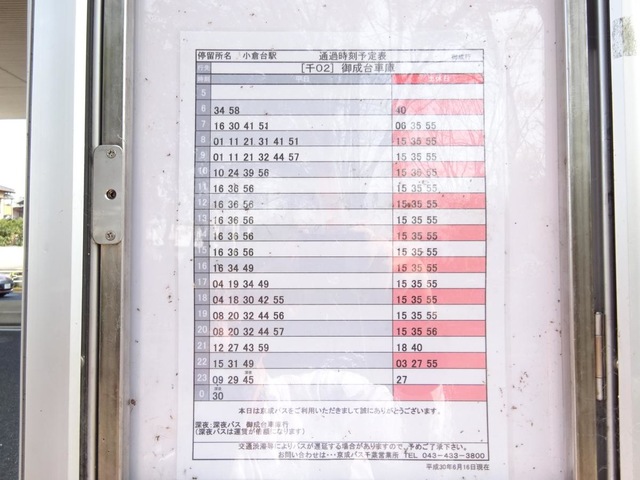 停留所名 小倉台駅 通過時刻予定表
[千02] 御成台車庫
時刻 平日 土休日
5
6 34 58 40
7 16 30 41 51 06 35 55
8 01 11 21 31 41 51 15 35 55
9 01 11 21 32 44 57 15 35 55
10 10 24 39 56 15 36 55
11 16 36 56 15 35 55
12 16 36 56 15 35 55
13 16 36 56 15 35 55
14 16 36 56 15 35 55
15 16 36 56 15 35 55
16 16 34 49 15 35 55
17 04 19 34 49 15 35 55
18 04 18 30 42 55 15 35 55
19 08 20 32 44 56 15 35 55
20 08 20 32 44 57 15 35 56
21 12 27 43 59 18 40
22 15 31 49 03 27 55
23 09 29 45 27
0 30
本日は京成バスをご利用いただきまして誠にありがとうございます。
深夜:深夜バス 御成台車庫行
(深夜バスは運賃が倍額になります)
交通渋滞等によりバスが遅延する場合がありますので、予めご了承下さい。
お問い合わせは・・・京成バス千葉営業所 TEL 043-433-3800
平成30年6月16日現在